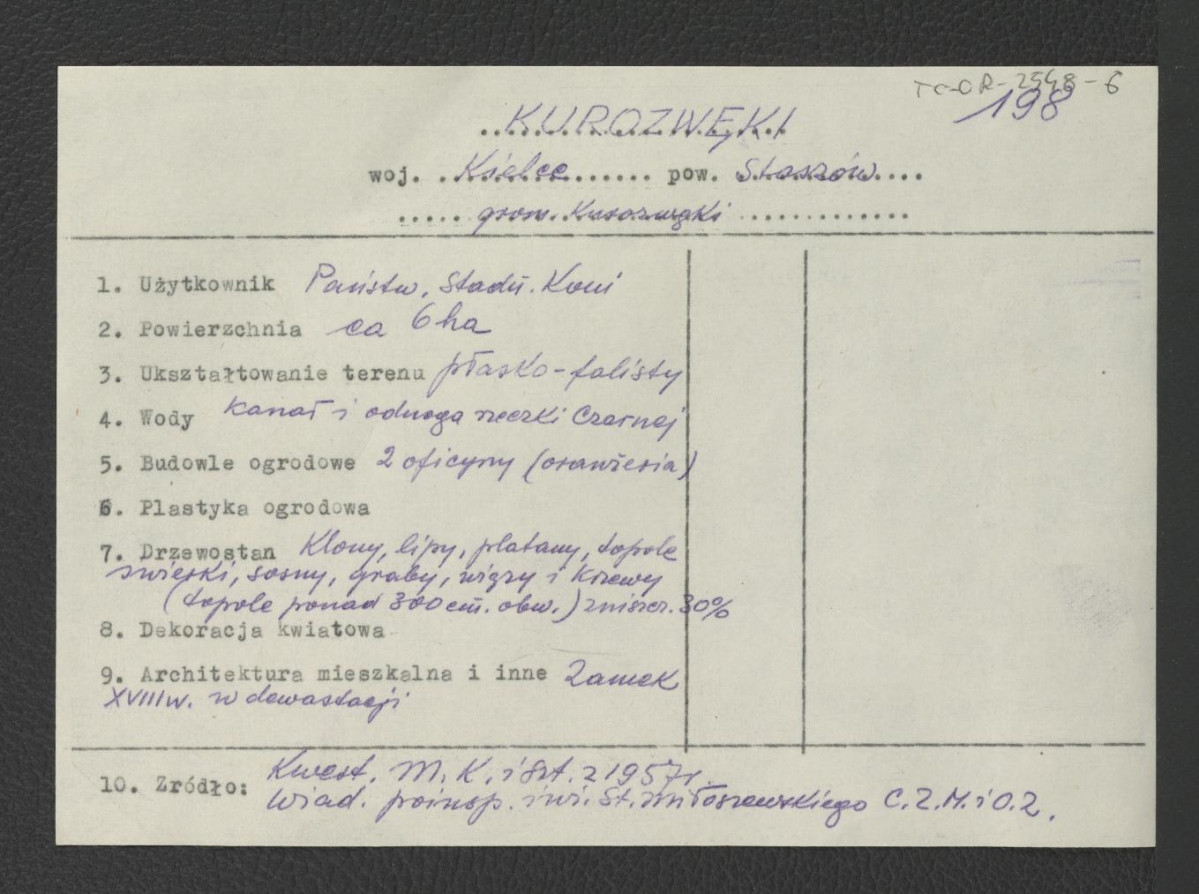 TC-OR-2548-6
198
KUROZWĘKI
woj. Kielce pow. Staszów
grom. Kurozwęki
1. Użytkownik Państw. Stadn. Koni
2. Powierzchnia ca 6 ha
3. Ukształtowanie terenu płasko-falisty
4. Wody kanał i odnoga rzeczki Czarnej
5. Budowle ogrodowe 2 oficyny (oranżeria)
6. Plastyka ogrodowa
7. Drzewostan Klony, lipy, platany, topole
świerki, sosny, graby, wiązy i krzewy
(topole ponad 300 cm. obw.) zniszcz. 30%
8. Dekoracja kwiatowa
9. Architektura mieszkalna i inne Zamek
XVIII w. w dewastacji
10. Zródło: Kwest. M. K. i Szt. z 1957 r.
Wiad. p. inż. St. Miłoszewskiego C. Z. M. i O. Z.